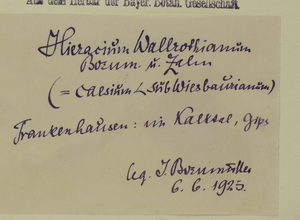 Aus dem Herbar der Bayer. Botan. Gesellschaft.
Hieracium Wallrothianum
Bornm u. Zahn
(= caesium < subWiesbaurianum)
Frankenhausen: im Kalktal, Gips
leg. J. Bornmüller
6. 6. 1925.